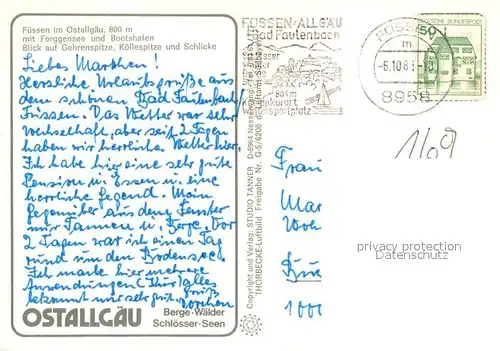 Füssen im Ostallgäu, 800 m
mit Forggensee und Bootshafen
Blick auf Gehrenspitze, Köllespitze und Schlicke
Liebes Marthen!
Herzliche Urlaubsgrüße aus
dem schönen Bad Faulenbach/
Füssen. Das Wetter war sehr
wechselhaft, aber seit 2 Tagen
haben wir herrliches Wetter hier.
Ich habe hier eine sehr gute
Pension u. Essen u. eine
herrliche Gegend. Mein
Gegenüber aus dem Fenster
nur Tannen u. Berge. Vor
2 Tagen war ich einen Tag
rund um den Bodensee.
Ich mache hier mehrere
Anwendungen (Kur) alles
bekommt mir sehr gut. Gruß
OSTALLGÄU
Berge · Wälder
Schlösser · Seen
Copyright und Verlag: STUDIO TANNER
THORBECKE-Luftbild Freigabe Nr. G-5/6206
FÜSSEN·ALLGÄU
Bad Faulenbach
FÜSSEN
m
-6.10.8
8958
50
DEUTSCHE BUNDESPOST
1/09
Frau
Mar
privacy protection
Datenschutz